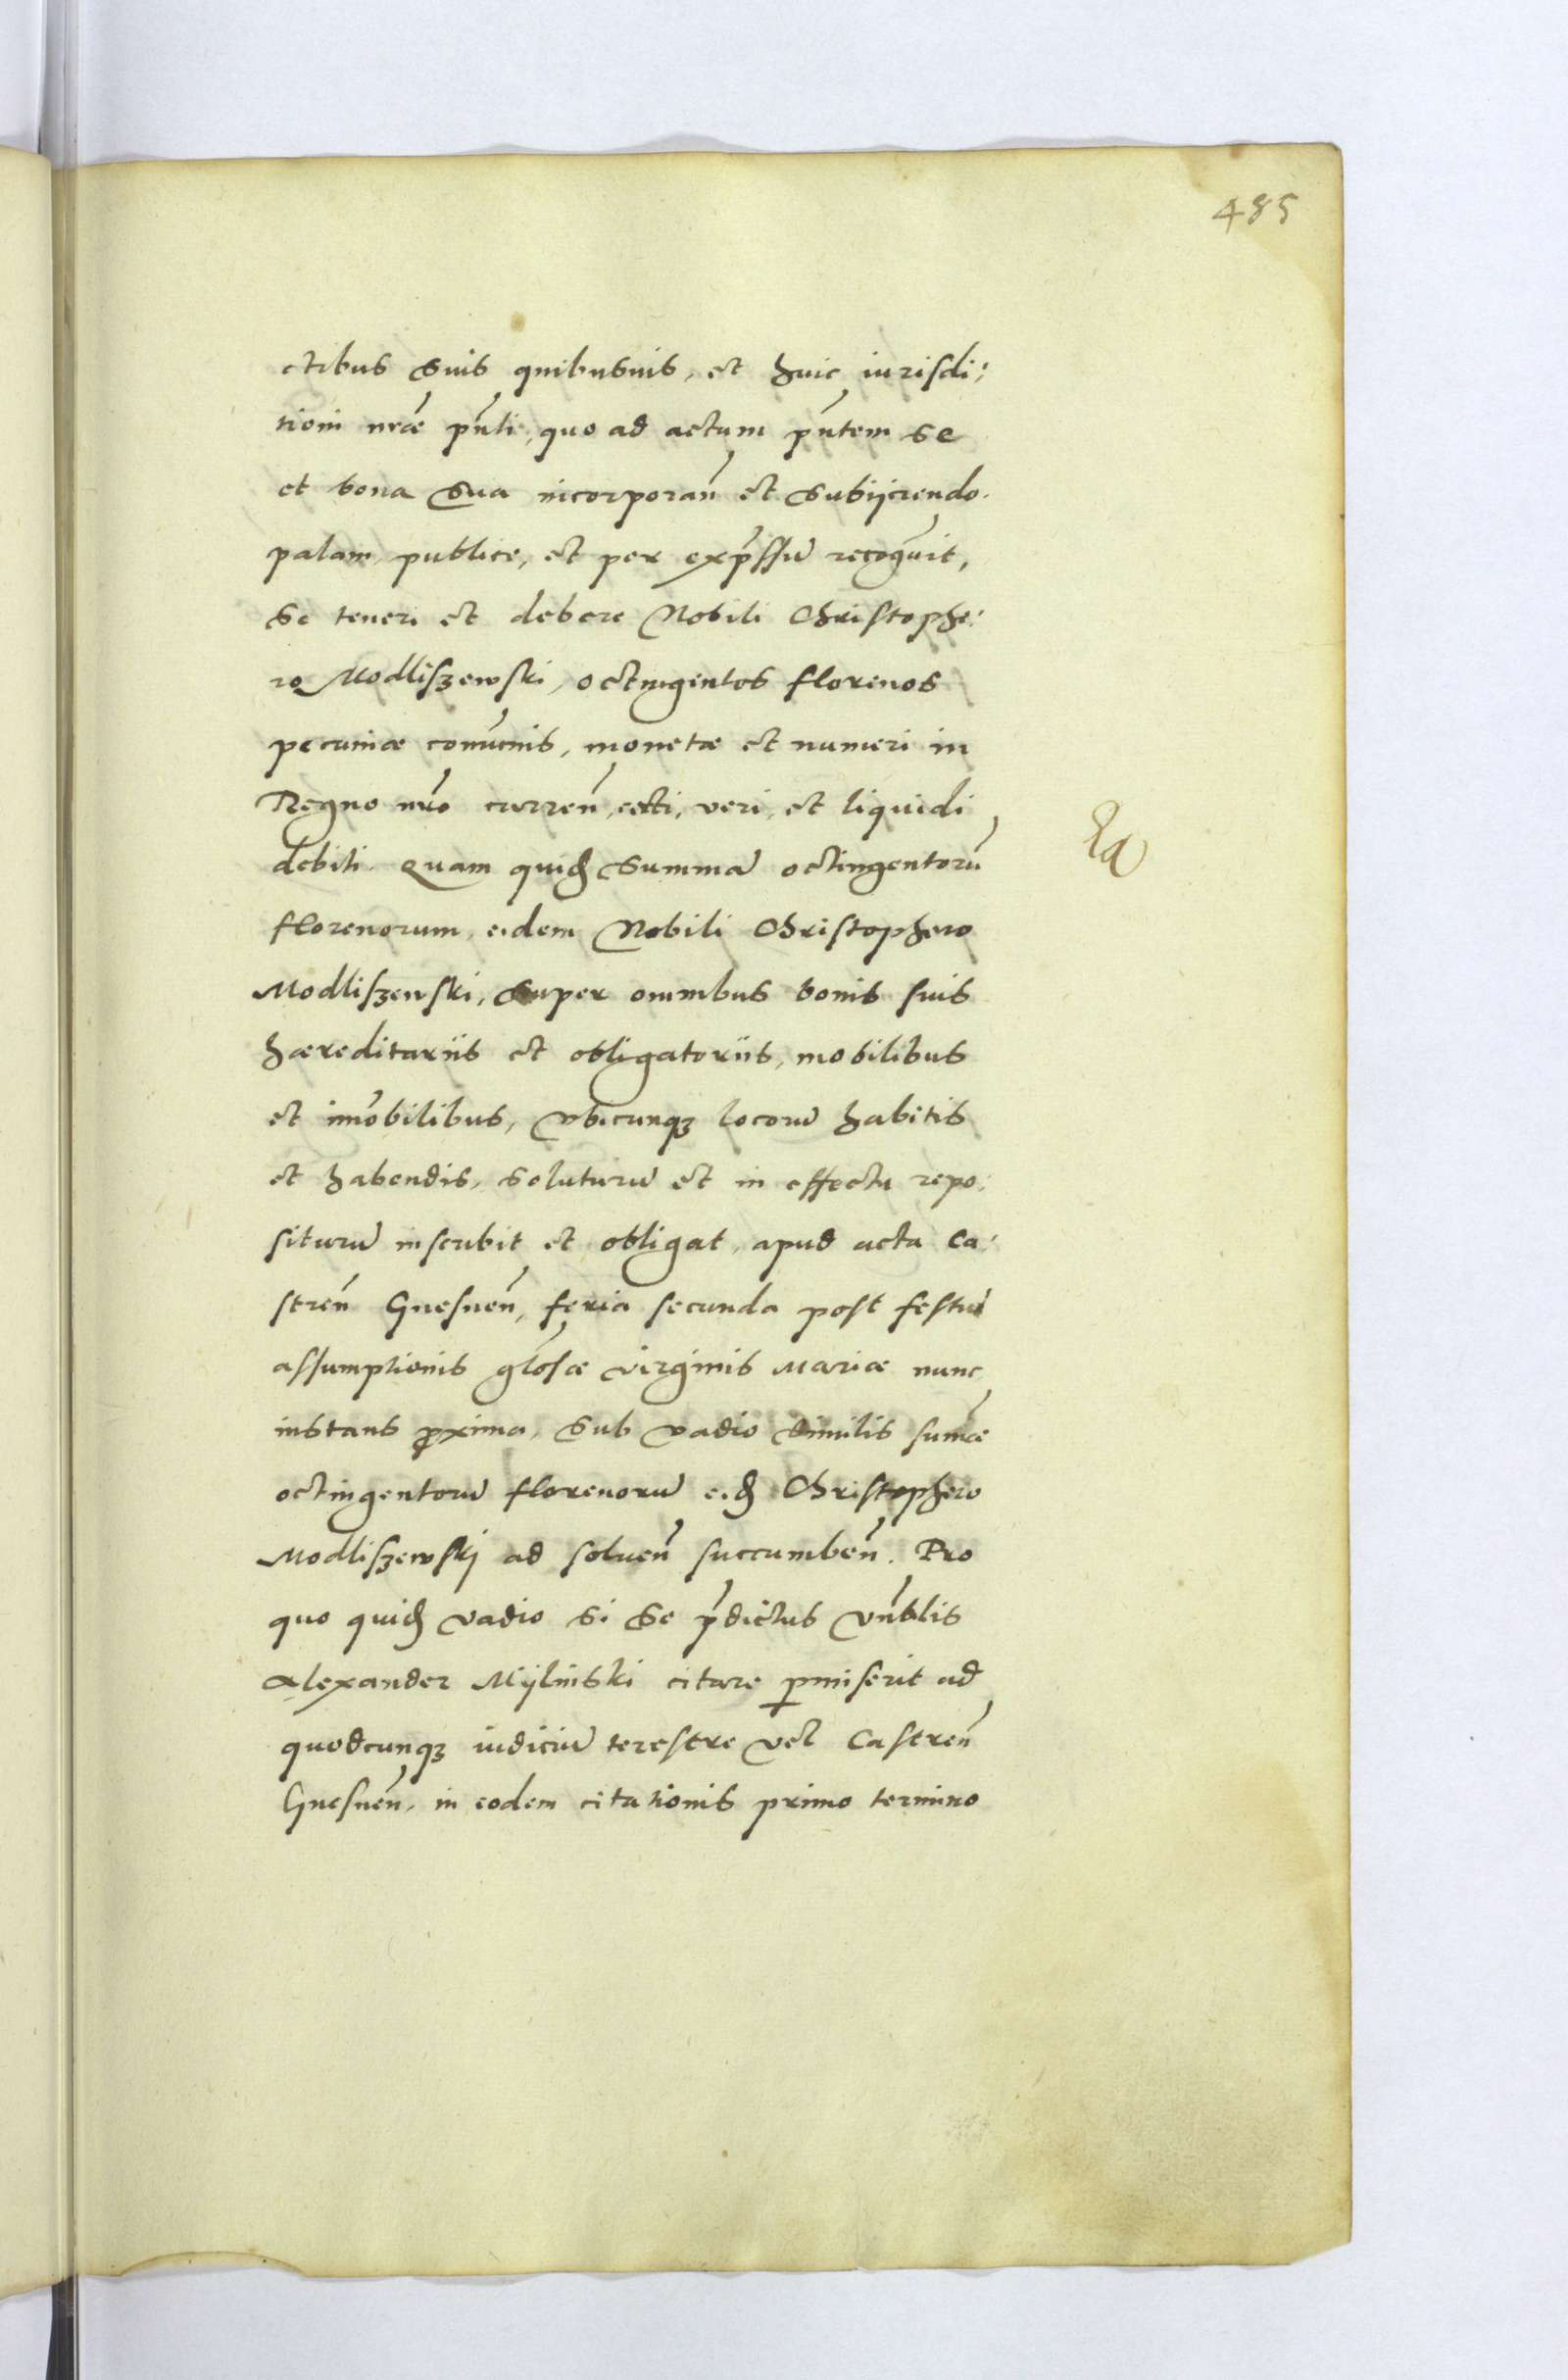 485
ctibus suis quibusuis, et huic iurisdi:
tioni nrae pnti, quo ad actum pntem se
et bona sua incorporan et subijciendo.
palam, publice, et per expssu recognuit,
se teneri et debere Nobili Christophe:
ro Modliszewski, octingentos florenos
pecuniae comunis, monetae et numeri in
Regno nro curren, certi, veri, et liquidi
debiti. Quam quid summa octingentoru
florenorum, eidem Nobili Christophero
Modliszewski, super omnibus bonis suis
haereditariis et obligatoriis, mobilibus
et imobilibus, vbicunqz locoru habitis
et habendis, soluturu et in effectu repo:
situru inscribit et obligat, apud acta Ca:
stren Gnesnen, feria secunda post festu
assumptionis glosae virginis Mariae nunc
instans proxima, sub vadio similis sumae
octingentoru florenoru eid Christophero
Modliszewskj ad soluen succumben. Pro
quo quid vadio si se pdictus vnblis
Alexander Mijlinski citare pmiserit ad
quodcunqz iudiciu terestre vel Castren
Gnesnen, in eodem citationis primo termino